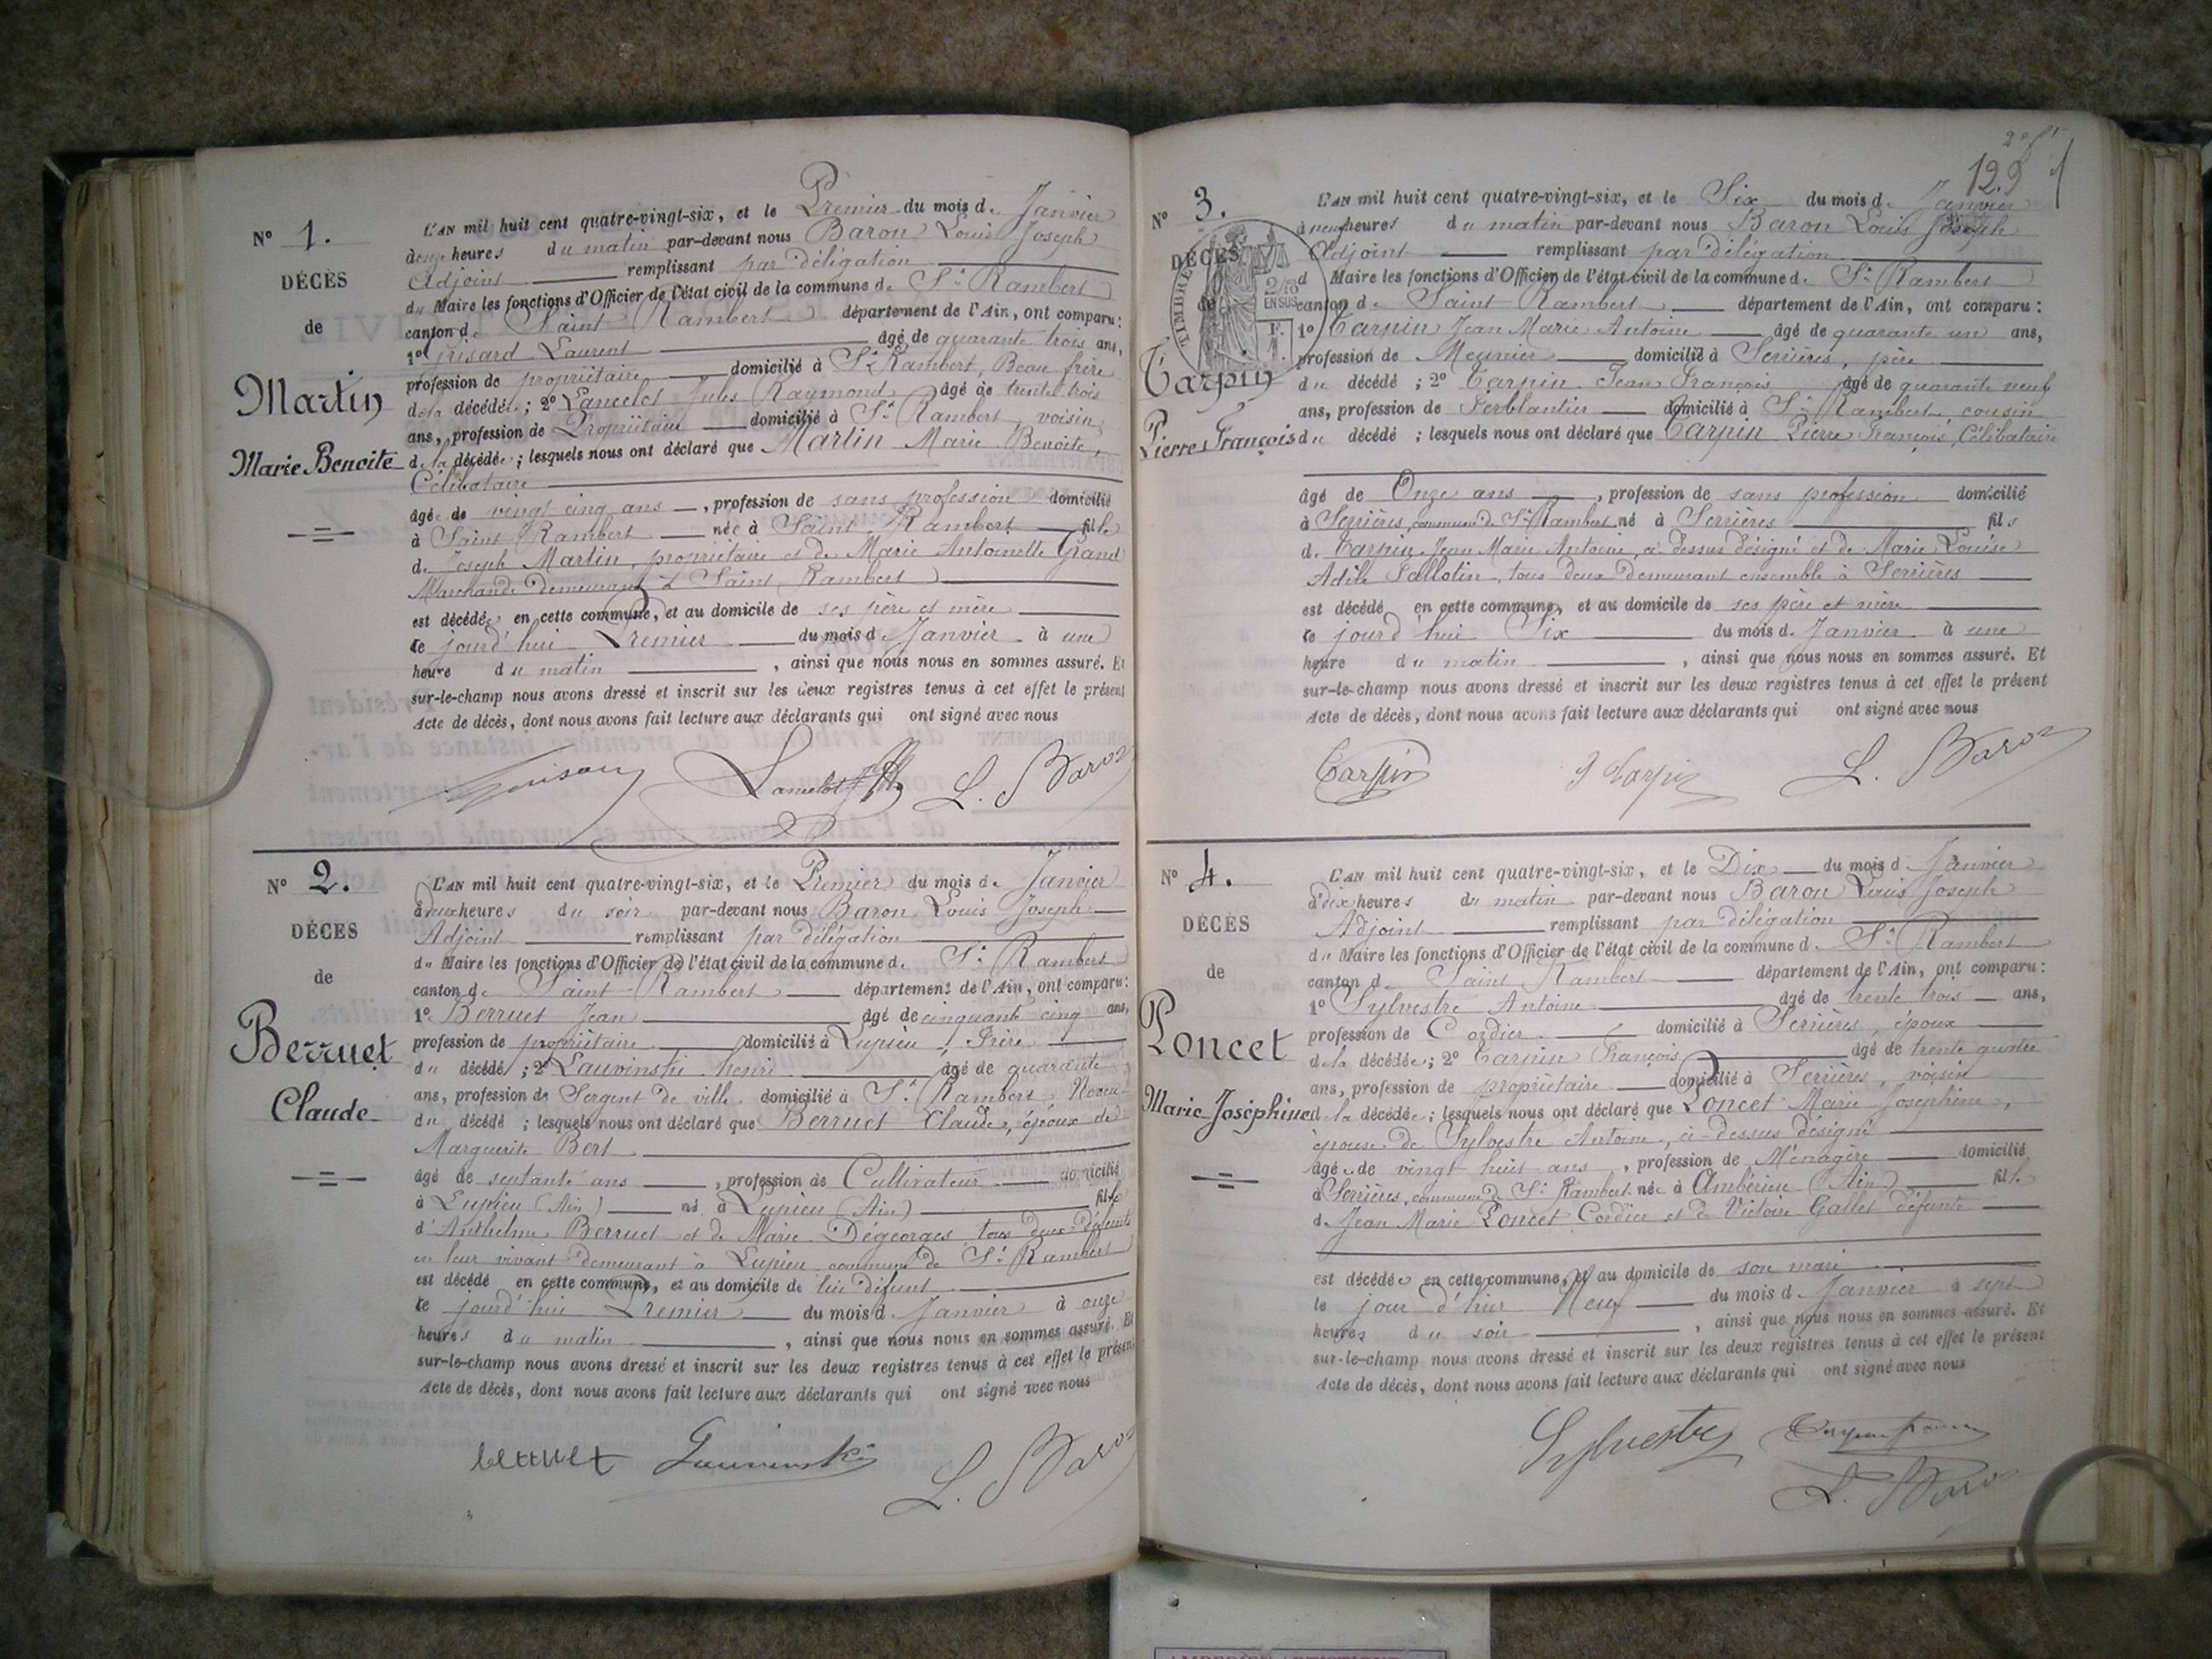 N° 1.
DÉCÈS
de
Martin
Marie Benoite
L'AN mil huit cent quatre-vingt-six, et le Premier du mois de Janvier
à onze heures du matin par-devant nous Baron Louis Joseph
Adjoint remplissant par délégation
du Maire les fonctions d'Officier de l'état civil de la commune de St Rambert
canton de Saint Rambert département de l'Ain, ont comparu :
1° Grisard Laurent âgé de quarante trois ans,
profession de propriétaire domicilié à St Rambert, Beau frère
de la décédée ; 2° Lancelot Jules Raymond âgé de trente trois
ans, profession de Propriétaire domicilié à St Rambert, voisin
de la décédée ; lesquels nous ont déclaré que Martin Marie Benoite,
Célibataire
âgée de vingt cinq ans, profession de sans profession domicilié
à Saint Rambert née à Saint Rambert fille
de Joseph Martin, propriétaire et de Marie Antoinette Grand
Marchande demeurant à Saint Rambert
est décédée en cette commune, et au domicile de ses père et mère
le jourd'hui Premier du mois de Janvier à une
heure du matin, ainsi que nous nous en sommes assuré. Et
sur-le-champ nous avons dressé et inscrit sur les deux registres tenus à cet effet le présent
Acte de décès, dont nous avons fait lecture aux déclarants qui ont signé avec nous
Lancelot L. Baron
N° 2.
DÉCES
de
Berruet
Claude
L'AN mil huit cent quatre-vingt-six, et le Premier du mois de Janvier
à deux heures du soir par-devant nous Baron Louis Joseph
Adjoint remplissant par délégation
du Maire les fonctions d'Officier de l'état civil de la commune de St Rambert
canton de Saint Rambert département de l'Ain, ont comparu :
1° Berruet Jean âgé de cinquante cinq ans,
profession de propriétaire domicilié à Lupieu, Frère
du décédé ; 2° Lauvinski henri âgé de quarante
ans, profession de Sergent de ville domicilié à St Rambert Neveu
du décédé ; lesquels nous ont déclaré que Berruet Claude, époux de
Marguerite Bert
âgé de septante ans, profession de Cultivateur domicilié
à Lupieu (Ain) né à Lupieu (Ain) fils
d'Anthelme Berruet et de Marie Dégeorges tous deux défunts
en leur vivant demeurant à Lupieu commune de St Rambert
est décédé en cette commune, et au domicile de lui défunt
le jourd'hui Premier du mois de Janvier à onze
heures du matin, ainsi que nous nous en sommes assuré. Et
sur-le-champ nous avons dressé et inscrit sur les deux registres tenus à cet effet le présent
Acte de décès, dont nous avons fait lecture aux déclarants qui ont signé avec nous
berruet Lauvinski L. Baron
129
N° 3.
DÉCÈS
de
TIMBRE
2/10 EN SUS
Tarpin
Pierre François
L'AN mil huit cent quatre-vingt-six, et le Six du mois de Janvier
à neuf heures du matin par-devant nous Baron Louis Joseph
Adjoint remplissant par délégation
d Maire les fonctions d'Officier de l'état civil de la commune de St Rambert
canton de Saint Rambert département de l'Ain, ont comparu :
1° Tarpin Jean Marie Antoine âgé de quarante un ans,
profession de Meunier domicilié à Serrières, père
du décédé ; 2° Tarpin Jean François âgé de quarante neuf
ans, profession de Ferblantier domicilié à St Rambert cousin
du décédé ; lesquels nous ont déclaré que Tarpin Pierre François, Célibataire
âgé de Onze ans, profession de sans profession domicilié
à Serrières, commune de St Rambert né à Serrières fils
de Tarpin Jean Marie Antoine, ci dessus désigné et de Marie Louise
Adèle Pallotin, tous deux demeurant ensemble à Serrières
est décédé en cette commune, et au domicile de ses père et mère
le jourd'hui Six du mois de Janvier à une
heure du matin, ainsi que nous nous en sommes assuré. Et
sur-le-champ nous avons dressé et inscrit sur les deux registres tenus à cet effet le présent
Acte de décès, dont nous avons fait lecture aux déclarants qui ont signé avec nous
Tarpin J Tarpin L. Baron
N° 4.
DÉCÈS
de
Poncet
Marie Joséphine
L'AN mil huit cent quatre-vingt-six, et le Dix du mois de Janvier
à dix heures du matin par-devant nous Baron Louis Joseph
Adjoint remplissant par délégation
du Maire les fonctions d'Officier de l'état civil de la commune de St Rambert
canton de Saint Rambert département de l'Ain, ont comparu :
1° Sylvestre Antoine âgé de trente trois ans,
profession de Cordier domicilié à Serrières, époux
de la décédée ; 2° Tarpin François âgé de trente quatre
ans, profession de propriétaire domicilié à Serrières, voisin
de la décédée ; lesquels nous ont déclaré que Poncet Marie Josephine,
épouse de Sylvestre Antoine, ci-dessus désigné
âgée de vingt huit ans, profession de Ménagère domicilié
à Serrières, commune de St Rambert née à Ambérieu (Ain) fille
de Jean Marie Poncet Cordier et de Victoire Gallet défunte
est décédée en cette commune, et au domicile de son mari
le jour d'hier Neuf du mois de Janvier à sept
heures du soir, ainsi que nous nous en sommes assuré. Et
sur-le-champ nous avons dressé et inscrit sur les deux registres tenus à cet effet le présent
Acte de décès, dont nous avons fait lecture aux déclarants qui ont signé avec nous
Sylvestre
L. Baron